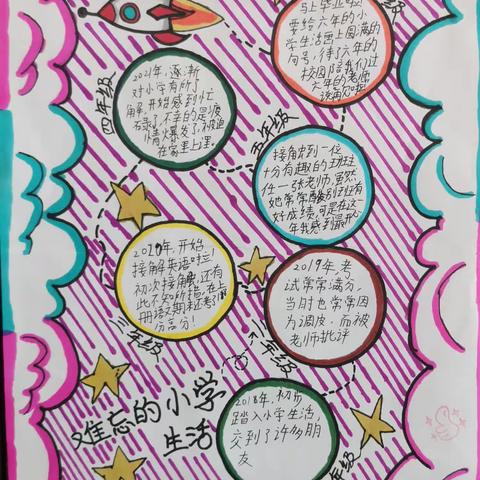 马上毕业
要给六年的小
学生活画上圆满的
句号,待了六年的
校园陪我们过
六年的老师
四年级
2021年,逐渐
对小学有所了
解,开始感到忙
碌了,不幸的是疫
情爆发了,被迫
在家里上课.
五年级
接触到一位
十分有趣的班主
任—张老师,虽然
她常常
好成绩,可是在这一
年我感到最开心
2020年,开始
接触英语
初次接触,还有
此不知所措,在上
册语文期末考了
份高分!
三年级
2019年,考
试常常满分,
当时也常常因
为调皮,而被
老师批评
二年级
2018年,初步
踏入小学生活,
交到了许多朋
友
年级
难忘的小学
生活